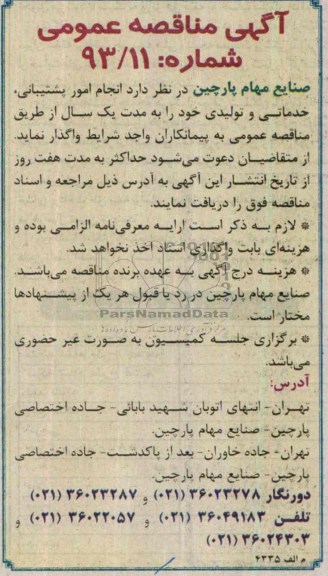 آگهی مناقصه عمومی
شماره: ۹۳/۱۱
صنایع مهام پارچین در نظر دارد انجام امور پشتیبانی،
خدماتی و تولیدی خود را به مدت یک سال از طریق
مناقصه عمومی به پیمانکاران واجد شرایط واگذار نماید.
از متقاضیان دعوت می‌شود حداکثر به مدت هفت روز
از تاریخ انتشار این آگهی به آدرس ذیل مراجعه و اسناد
مناقصه فوق را دریافت نمایند.
* لازم به ذکر است ارایه معرفی‌نامه الزامی بوده و
هزینه‌ای بابت واگذاری اسناد اخذ نخواهد شد.
* هزینه درج آگهی به عهده برنده مناقصه می‌باشد.
صنایع مهام پارچین در رد یا قبول هر یک از پیشنهادها
مختار است.
ParsNamadData
* برگزاری جلسه کمیسیون به صورت غیر حضوری
می‌باشد.
آدرس:
تهران- انتهای اتوبان شهید بابائی- جاده اختصاصی
پارچین- صنایع مهام پارچین.
تهران- جاده خاوران- بعد از پاکدشت- جاده اختصاصی
پارچین- صنایع مهام پارچین.
دورنگار ۳۶۰۲۳۲۷۸ (۰۲۱) و ۳۶۰۲۳۲۸۷ (۰۲۱)
تلفن ۳۶۰۴۹۱۸۳ (۰۲۱) و ۳۶۰۲۲۰۵۷ (۰۲۱) و
۳۶۰۲۴۳۰۳ (۰۲۱)
م الف ۴۳۳۵